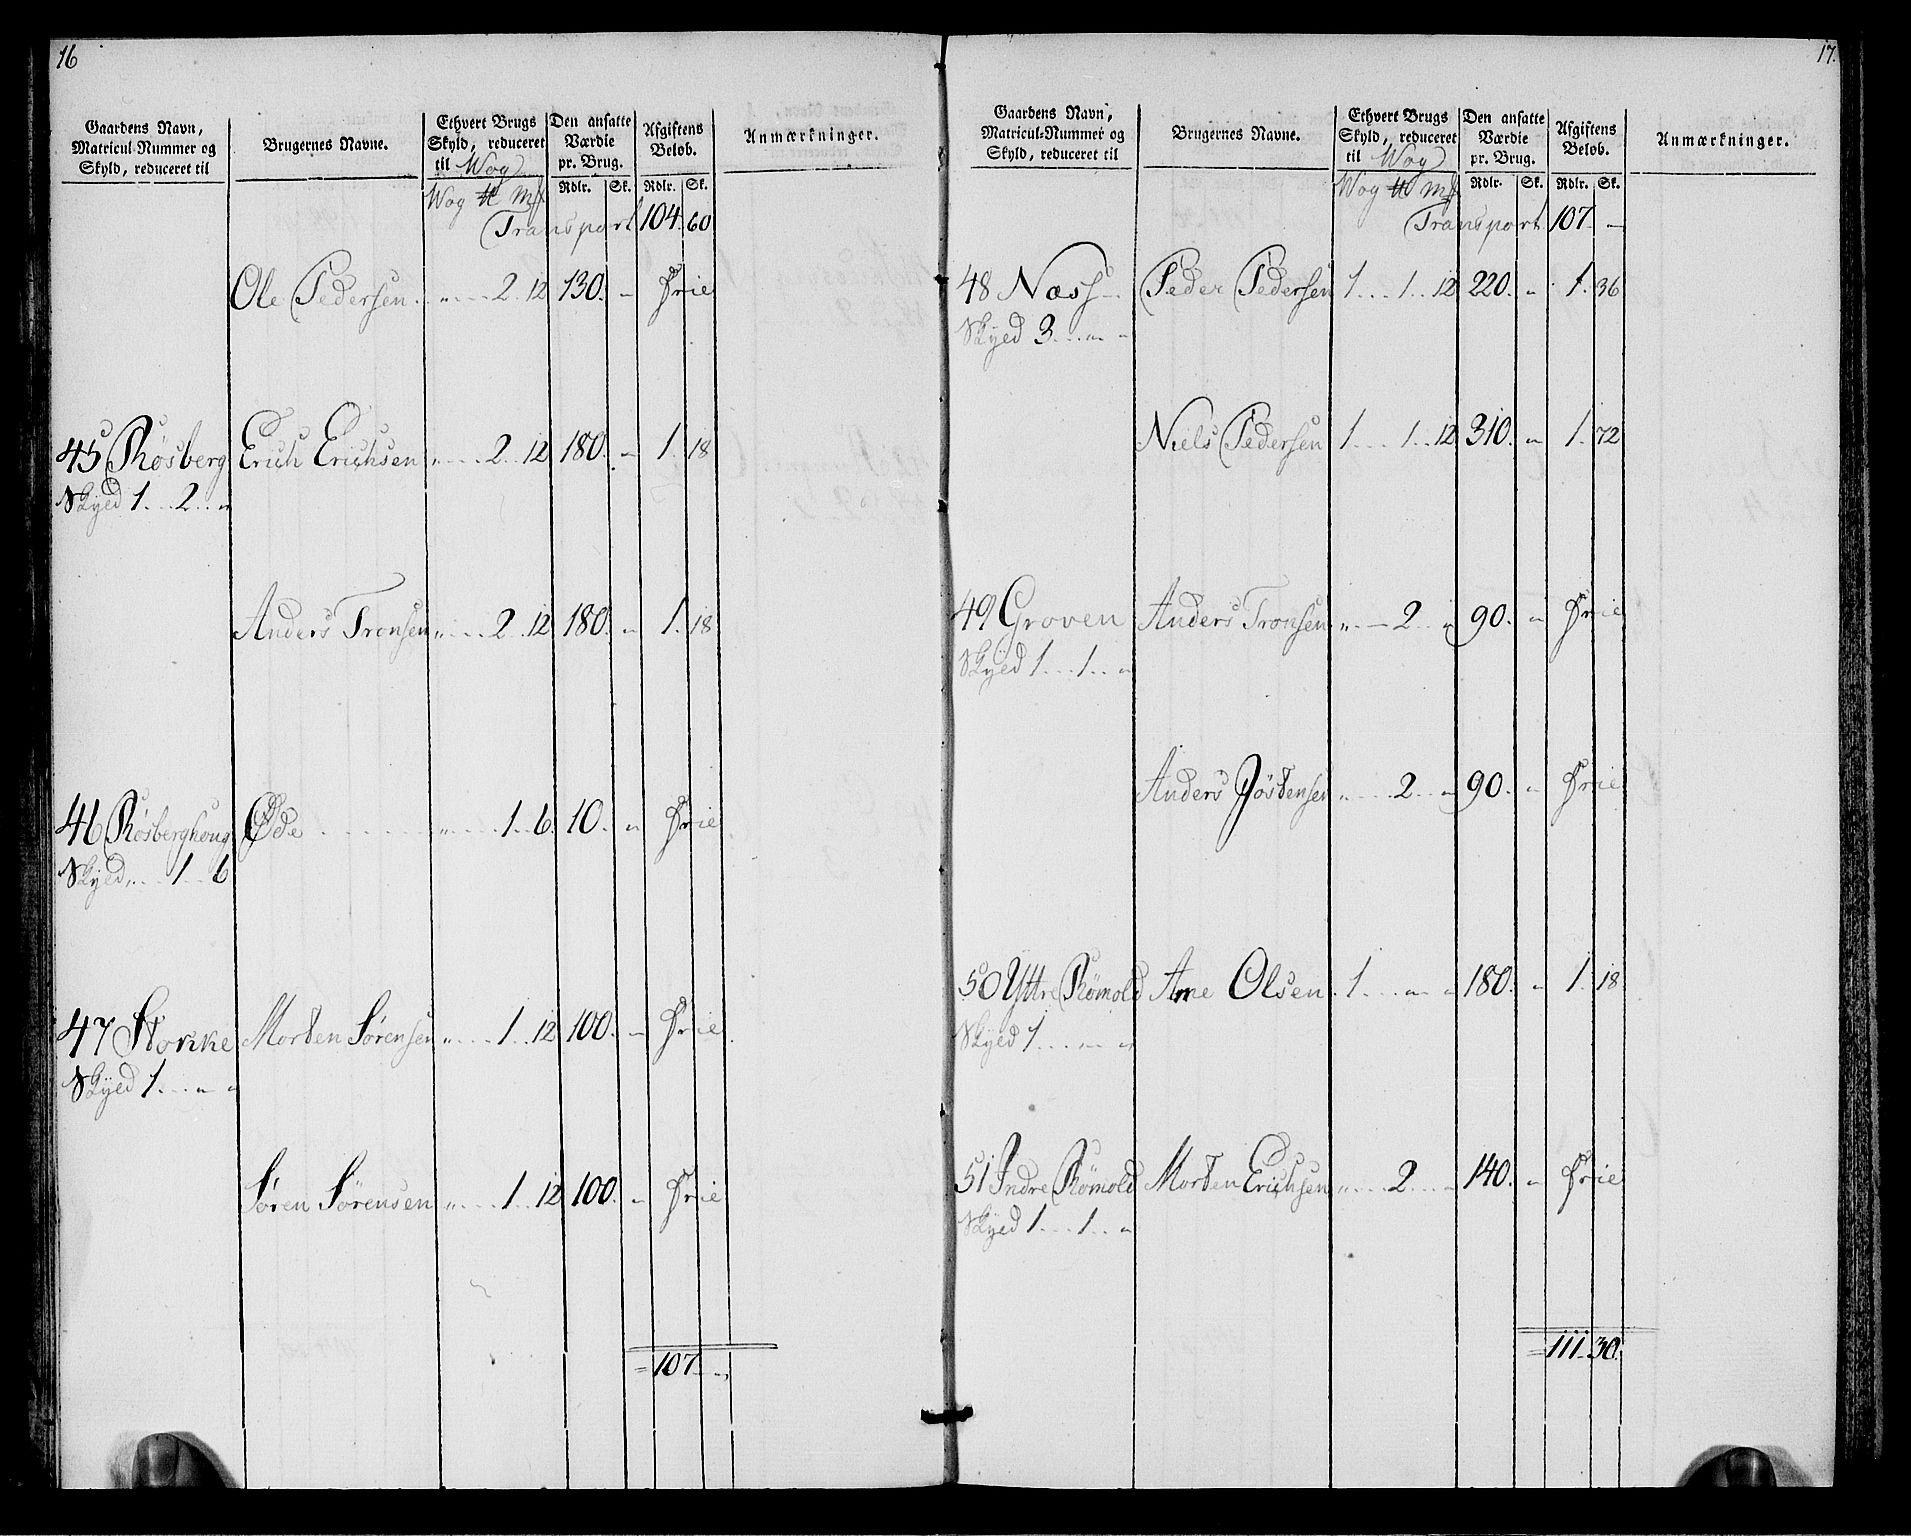 16
Gaardens Navn, Matricul-Nummer og Skyld, reduceret til
Brugernes Navne.
Ethvert Brugs Skyld, reduceret til Wog
Den ansatte Værdie pr. Brug.
Afgiftens Beløb.
Anmærkninger.
Wog ℔ Mk Rdlr. Sk. Rdlr. Sk.
Transport 104. 60
Ole Pedersen. „ 2 12 130. „ Frie
45 Røsberg Erich Erichsen „ 2 12 180. „ 1. 18
Skyld 1 2 „
Anders Tronsen „ 2 12 180. „ 1. 18
46 Røsberghoug Øde „ 1 6. 10. „ Frie
Skyld „ 1 6
47 Stokke Morten Sørensen „ 1 12 100. „ Frie
Skyld 1 „ „
Søren Sørensen „ 1 12 100. „ Frie
107 „
17.
Gaardens Navn, Matricul-Nummer og Skyld, reduceret til
Brugernes Navne.
Ethvert Brugs Skyld, reduceret til Wog
Den ansatte Værdie pr. Brug.
Afgiftens Beløb.
Anmærkninger.
Wog ℔ Mk Rdlr. Sk. Rdlr. Sk.
Transport 107 „
48 Næss Peder Pedersen 1 1 12 220. „ 1. 36
Skyld 3 „ „
Niels Pedersen 1 1 12 310. „ 1. 72
49 Groven Anders Tronsen „ 2 „ 90. „ Frie
Skyld 1 1 „
Anders Jøstensen „ 2 „ 90. „ Frie
50 Yttre Rømold Arne Olsen 1 „ „ 180. „ 1. 18
Skyld 1 „ „
51 Indre Rømold Morten Erichsen „ 2 „ 140. „ Frie
Skyld 1 1 „
111 30.